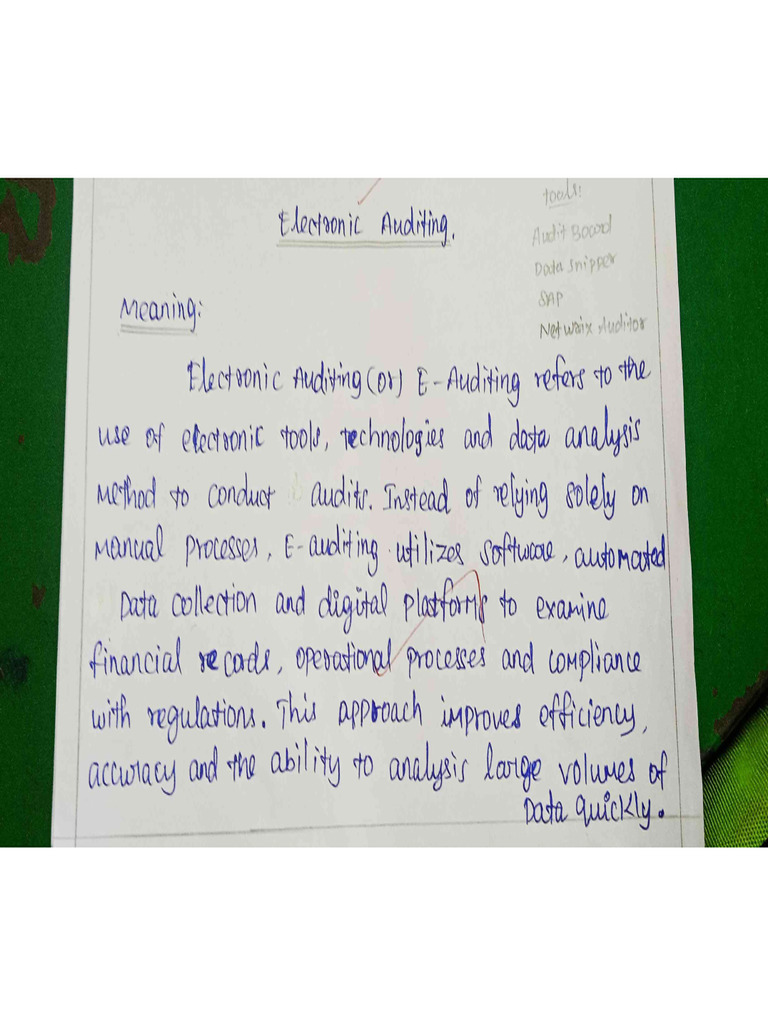 Electronic Auditing.
tools:
Audit Board
Data Snipper
SAP
Netwrix Auditor
Meaning:
Electronic Auditing (or) E-Auditing refers to the
use of electronic tools, technologies and data analysis
method to conduct audits. Instead of relying solely on
manual processes, E-auditing utilizes software, automated
Data collection and digital platforms to examine
financial records, operational processes and compliance
with regulations. This approach improves efficiency,
accuracy and the ability to analysis large volumes of
Data quickly.